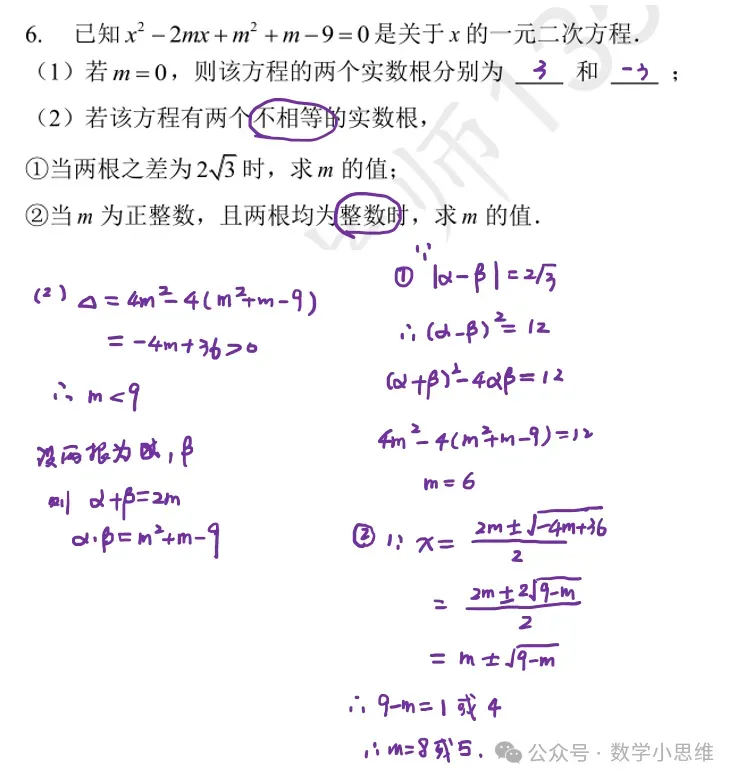 6. 已知 x² − 2mx + m² + m − 9 = 0 是关于 x 的一元二次方程.
（1）若 m = 0，则该方程的两个实数根分别为 3 和 -3 ；
（2）若该方程有两个不相等的实数根，
①当两根之差为 2√3 时，求 m 的值；
②当 m 为正整数，且两根均为整数时，求 m 的值.
(2) △ = 4m² - 4(m²+m-9)
= -4m+36 > 0
∴ m < 9
设两根为 α, β
则 α+β=2m
α·β=m²+m-9
① ∵ |α-β| = 2√3
∴ (α-β)² = 12
(α+β)² - 4αβ = 12
4m² - 4(m²+m-9) = 12
m = 6
② ∵ x = (2m ± √(-4m+36))/2
= (2m ± 2√(9-m))/2
= m ± √(9-m)
∴ 9-m = 1 或 4
∴ m = 8 或 5.
公众号 · 数学小思维